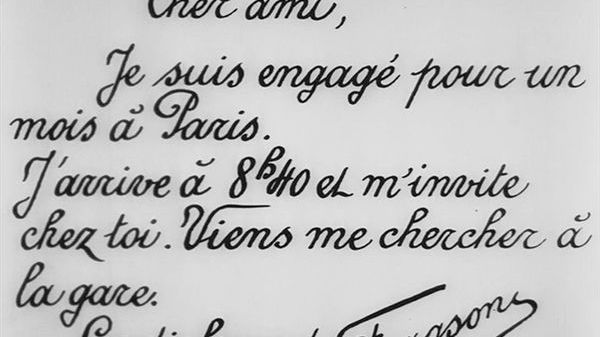 Cher ami,
Je suis engagé pour un
mois à Paris.
J'arrive à 8h40 et m'invite
chez toi. Viens me chercher à
la gare.